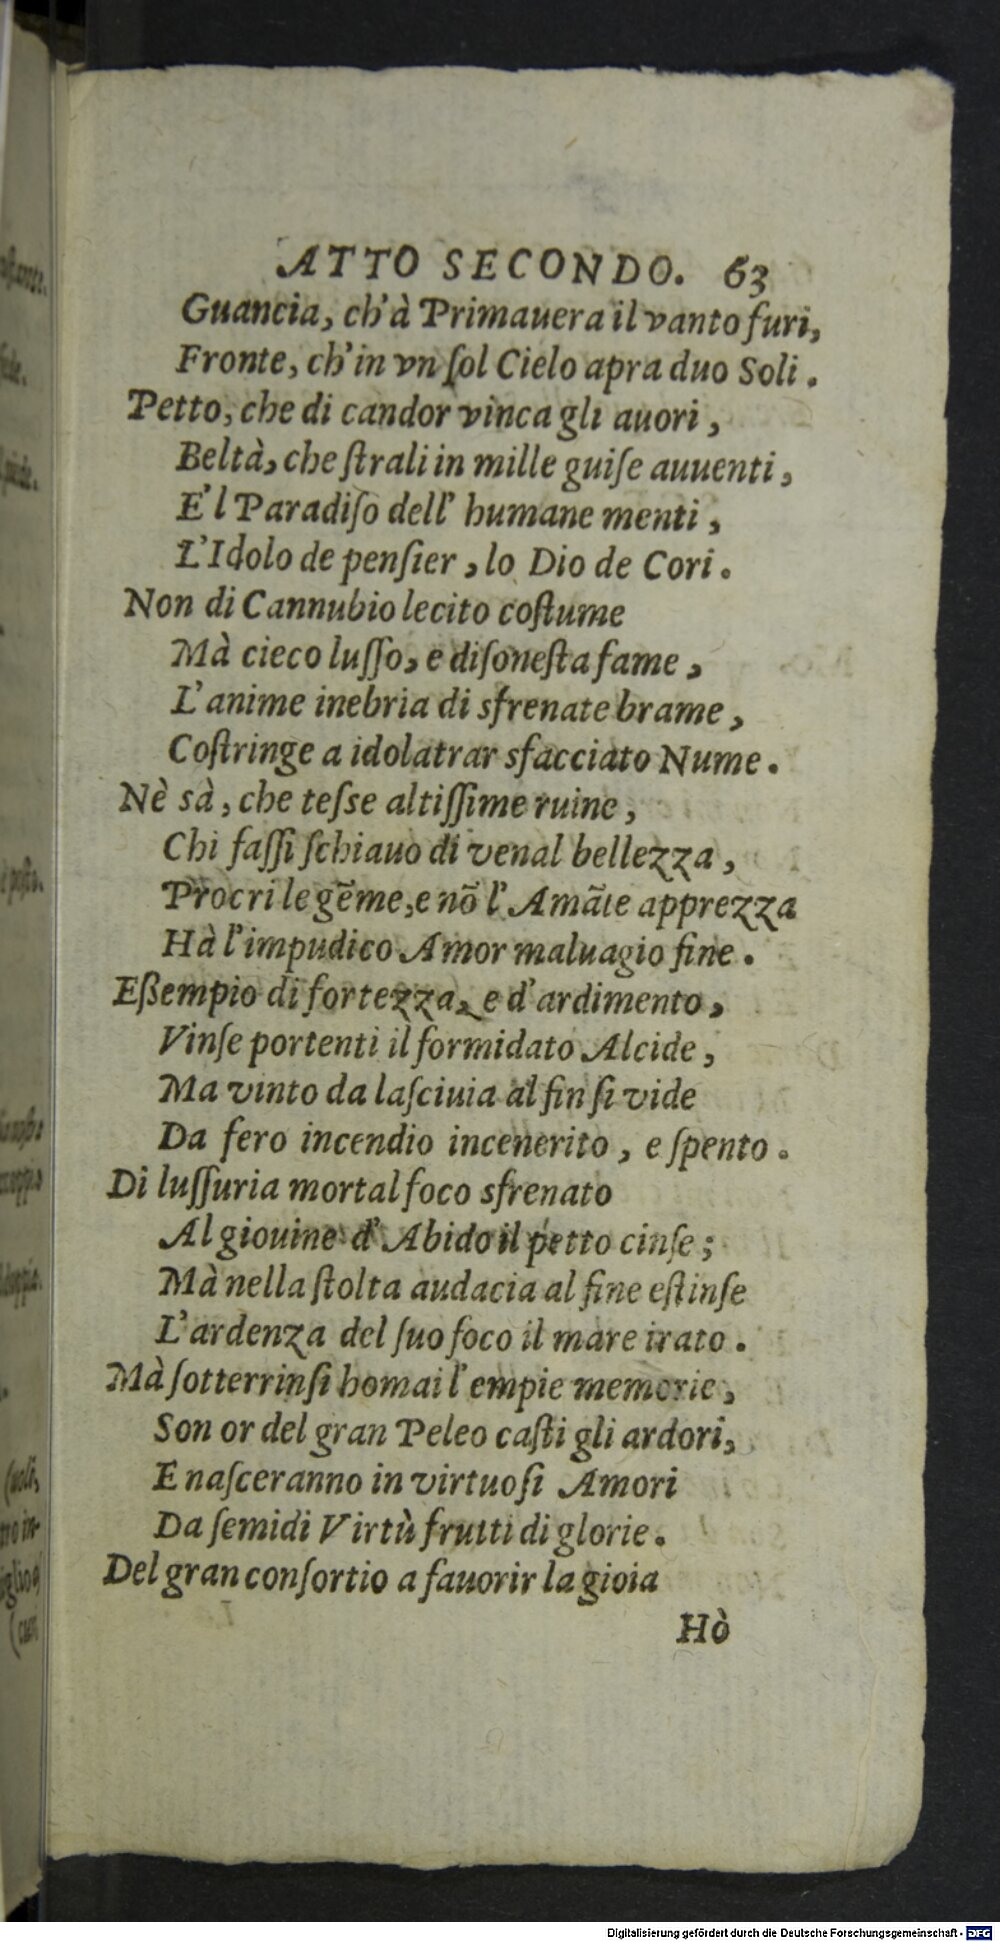 ATTO SECONDO. 63
Guancia, ch'à Primauera il vanto furi,
Fronte, ch'in vn ſol Cielo apra duo Soli.
Petto, che di candor vinca gli auori,
Beltà, che ſtrali in mille guiſe auuenti,
E'l Paradiſo dell' humane menti,
L'Idolo de penſier, lo Dio de Cori.
Non di Cannubio lecito coſtume
Mà cieco luſſo, e diſoneſta fame,
L'anime inebria di sfrenate brame,
Coſtringe a idolatrar sfacciato Nume.
Nè sà, che teſse altiſſime ruine,
Chi faſſi ſchiauo di venal bellezza,
Procri le gẽme, e nõ l'Amãte apprezza
Hà l'impudico Amor maluagio fine.
Eßempio di fortezza, e d'ardimento,
Vinſe portenti il formidato Alcide,
Ma vinto da laſciuia al fin ſi vide
Da fero incendio incenerito, e ſpento.
Di luſſuria mortal foco sfrenato
Al giouine d'Abido il petto cinſe;
Mà nella ſtolta audacia al fine eſtinſe
L'ardenza del ſuo foco il mare irato.
Mà ſotterrinſi homai l'empie memorie,
Son or del gran Peleo caſti gli ardori,
E naſceranno in virtuoſi Amori
Da ſemidi Virtù frutti di glorie.
Del gran conſortio a fauorir la gioia
Hò
Digitalisierung gefördert durch die Deutsche Forschungsgemeinschaft - DFG